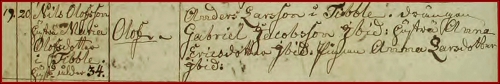 19. 20 Nils Olofsson
Hustru Maria
Olofsdotter
i Tibble
34.
Olof
Anders Larsson i Tibble. drängen
Gabriel Jacobsson Ibid: Hustru Anna
Ericsdotter Ibid: Pigan Anna Larsdotter
Ibid: